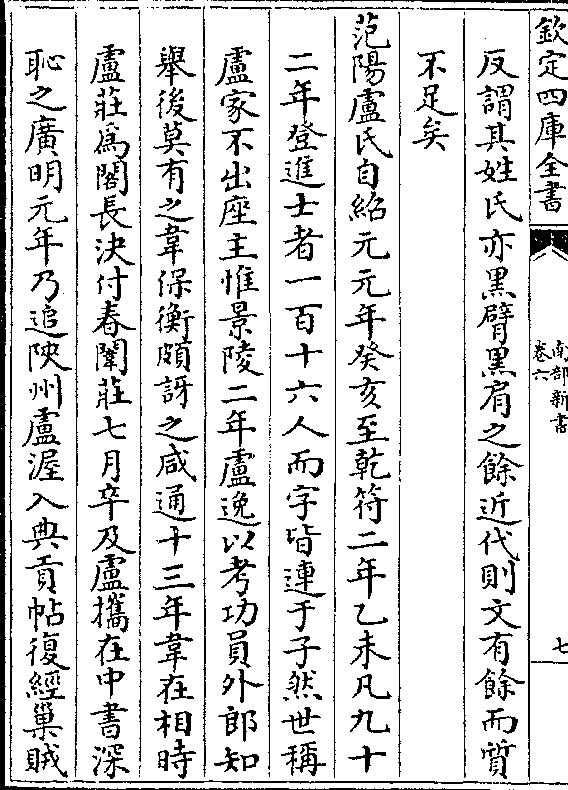 欽定四庫全書
南部新書
卷六
七
反謂其姓氏亦黑臂黑肩之餘近代則文有餘而質
不足矣
范陽盧氏自紹元元年癸亥至乾符二年乙未凡九十
二年登進士者一百十六人而字皆連于子然世稱
盧家不出座主惟景陵二年盧逸以考功員外郎知
舉後莫有之韋保衡頗訝之咸通十三年韋在相時
盧莊為閣長決付春闈莊七月卒及盧攜在中書深
恥之廣明元年乃追陝州盧渥入典貢帖復經巢賊